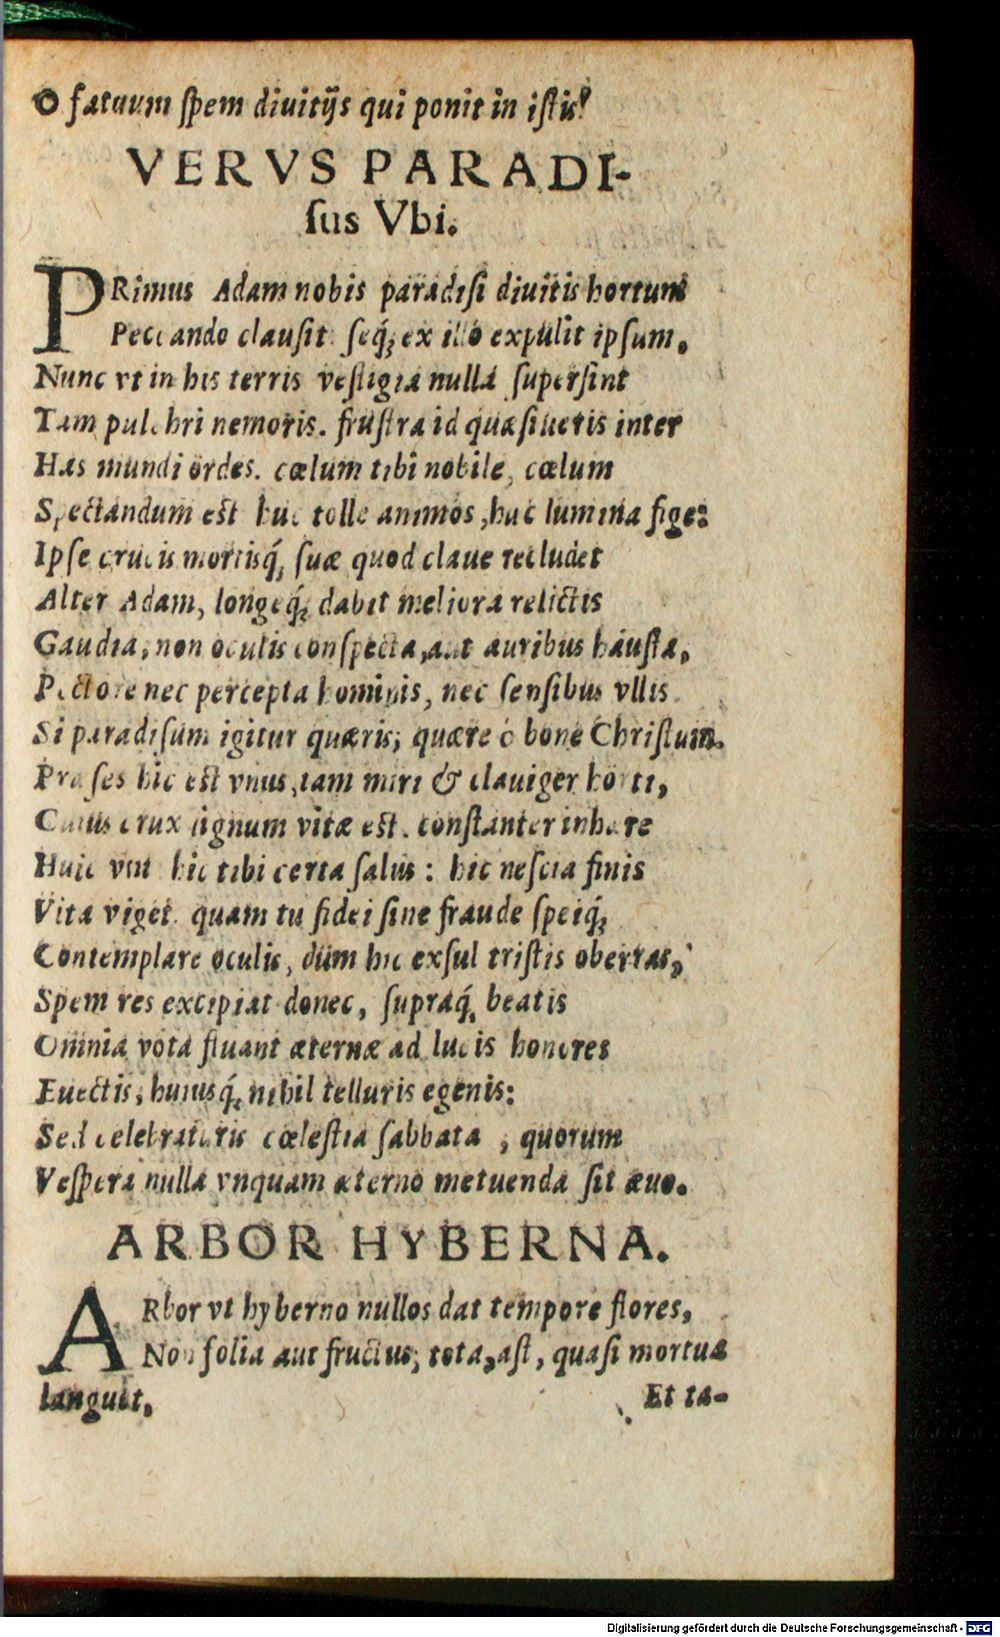 O fatuum ſpem diuitijs qui ponit in iſtis!
VERVS PARADI-
ſus Vbi.
PRimus Adam nobis paradiſi diuitis hortum
Peccando clauſit ſeq́; ex illo expulit ipſum.
Nunc vt in his terris veſtigia nulla ſuperſint
Tam pulchri nemoris. fruſtra id quæſiueris inter
Has mundi ordes. cœlum tibi nobile, cœlum
Spectandum est huc tolle animos, huc lumina fige:
Ipſe crucis mortisq́; ſuæ quod claue recludet
Alter Adam, longeq́; dabit meliora relictis
Gaudia, non oculis conſpecta, aut auribus hauſta,
Pectore nec percepta hominis, nec ſenſibus vllis
Si paradiſum igitur quæris; quære ô bone Chriſtum.
Præſes hic est vnus, tam miri & clauiger horti,
Cuius crux lignum vitæ est. conſtanter inhære
Huic vni hic tibi certa ſalus: hic neſcia finis
Vita viget. quam tu fidei ſine fraude ſpeiq́;
Contemplare oculis, dum hic exſul triſtis oberras,
Spem res excipiat donec, ſupraq́; beatis
Omnia vota fluant æternæ ad lucis honores
Euectis, huiusq́; nihil telluris egenis:
Sed celebraturis cœleſtia ſabbata, quorum
Veſpera nulla vnquam æterno metuenda ſit æuo.
ARBOR HYBERNA.
ARbor vt hyberno nullos dat tempore flores,
Non folia aut fructus; tota, aſt, quaſi mortua
languet,
Et ta-
Digitalisierung gefördert durch die Deutsche Forschungsgemeinschaft - DFG